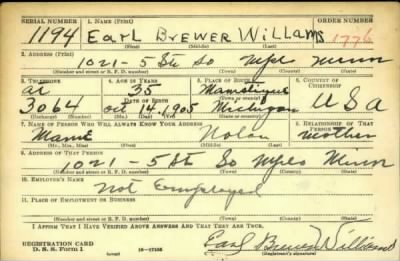 SERIAL NUMBER 1. NAME (Print) ORDER NUMBER
1194 Earl Brewer Willams 1776
(First) (Middle) (Last)
2. ADDRESS (Print)
1021 - 5 St So Mpls Minn
(Number and street or R. F. D. number) (Town) (County) (State)
3. TELEPHONE 4. AGE IN YEARS 5. PLACE OF BIRTH 6. COUNTRY OF CITIZENSHIP
At 35 Manistique
DATE OF BIRTH (Town or county)
3064 Oct 14, 1905 Michigan U S A
(Exchange) (Number) (Mo.) (Day) (Yr.) (State or country)
7. NAME OF PERSON WHO WILL ALWAYS KNOW YOUR ADDRESS 8. RELATIONSHIP OF THAT PERSON
Mame Nolan Mother
(Mr., Mrs., Miss) (First) (Middle) (Last)
9. ADDRESS OF THAT PERSON
1021 - 5 St So Mpls Minn
(Number and street or R. F. D. number) (Town) (County) (State)
10. EMPLOYER'S NAME
Not Employed
11. PLACE OF EMPLOYMENT OR BUSINESS
(Number and street or R. F. D. number) (Town) (County) (State)
I AFFIRM THAT I HAVE VERIFIED ABOVE ANSWERS AND THAT THEY ARE TRUE.
REGISTRATION CARD
D. S. S. Form 1 (over) 16-17105 Earl Brewer Williams
(Registrant's signature)